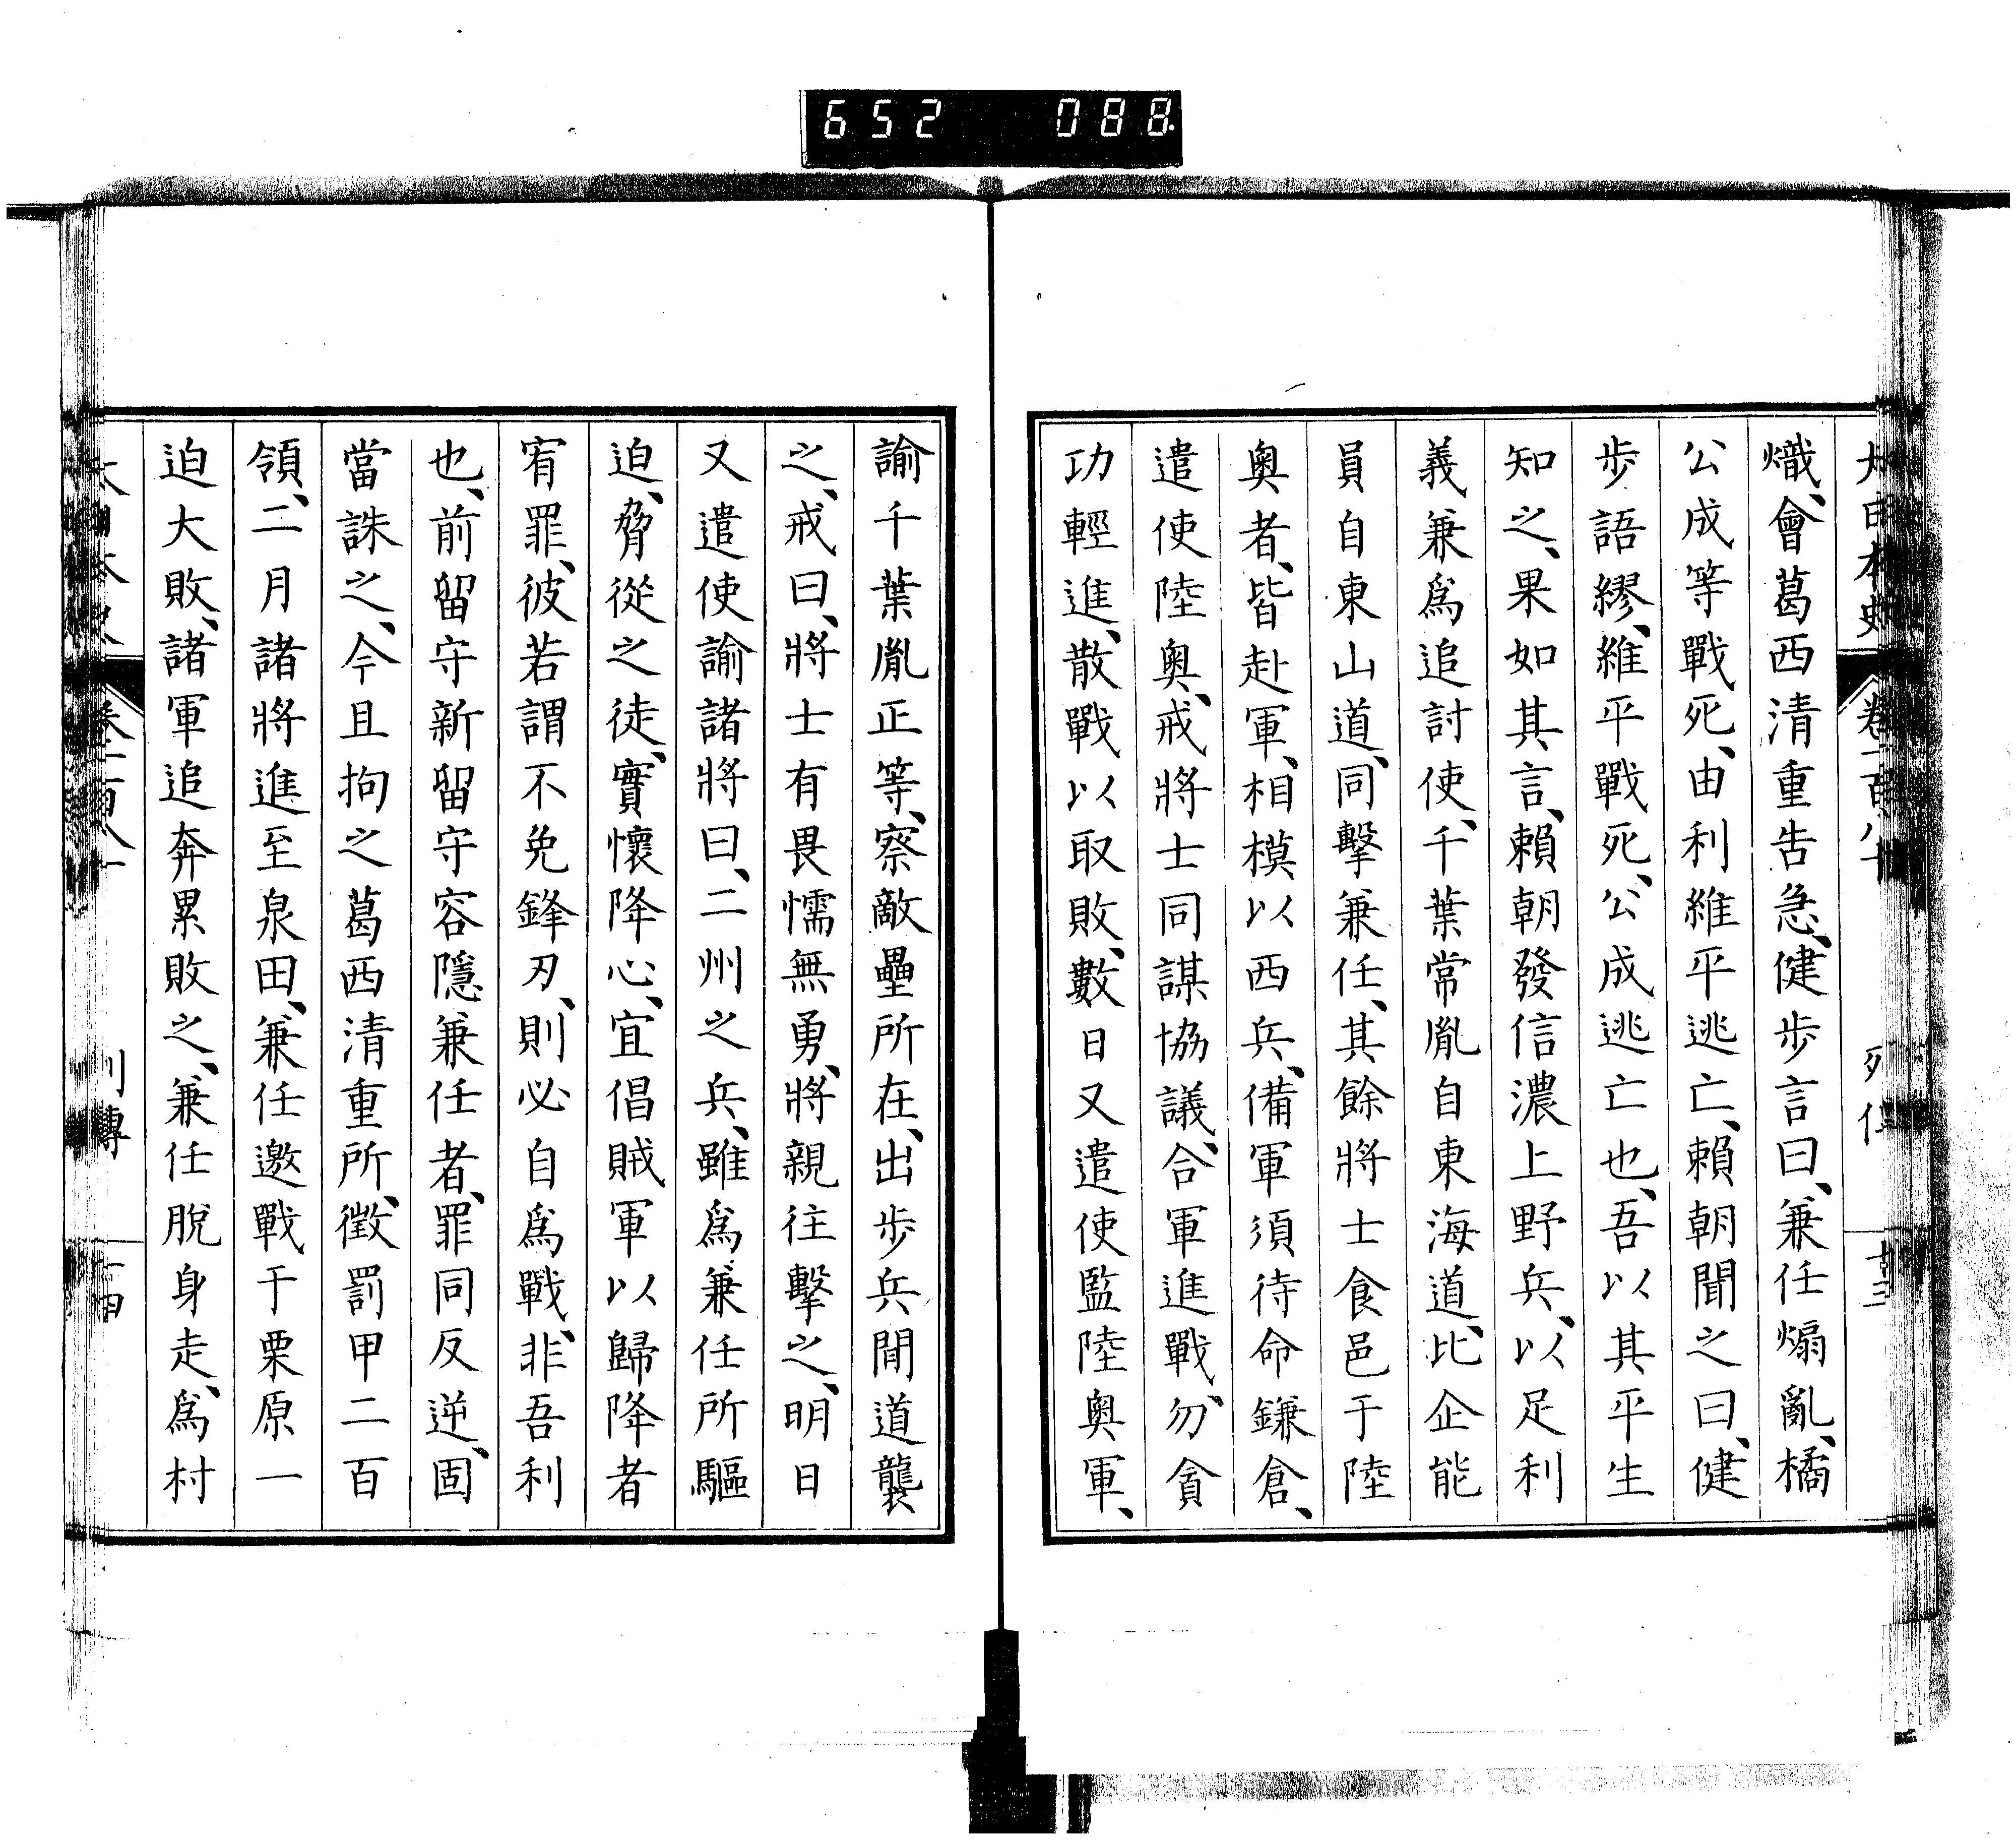 652 088
大日本史 卷一百八十 列傳 廿三
熾、會葛西清重告急、健步言曰、兼任煽亂、橘
公成等戰死、由利維平逃亡、賴朝聞之曰、健
步語繆、維平戰死、公成逃亡也、吾以其平生
知之、果如其言、賴朝發信濃上野兵、以足利
義兼爲追討使、千葉常胤自東海道、比企能
員自東山道、同擊兼任、其餘將士食邑于陸
奧者、皆赴軍、相模以西兵、備軍須待命鎌倉、
遣使陸奧、戒將士同謀協議、合軍進戰、勿貪
功輕進、散戰以取敗、數日又遣使監陸奧軍、
諭千葉胤正等、察敵壘所在、出步兵間道襲
之、戒曰、將士有畏懦無勇、將親往擊之、明日
又遣使諭諸將曰、二州之兵、雖爲兼任所驅
迫、脅從之徒、實懷降心、宜倡賊軍以歸降者
宥罪、彼若謂不免鋒刃、則必自爲戰、非吾利
也、前留守新留守容隱兼任者、罪同反逆、固
當誅之、今且拘之葛西清重所、徵罰甲二百
領、二月諸將進至泉田、兼任邀戰于栗原一
迫大敗、諸軍追奔累敗之、兼任脫身走、爲村